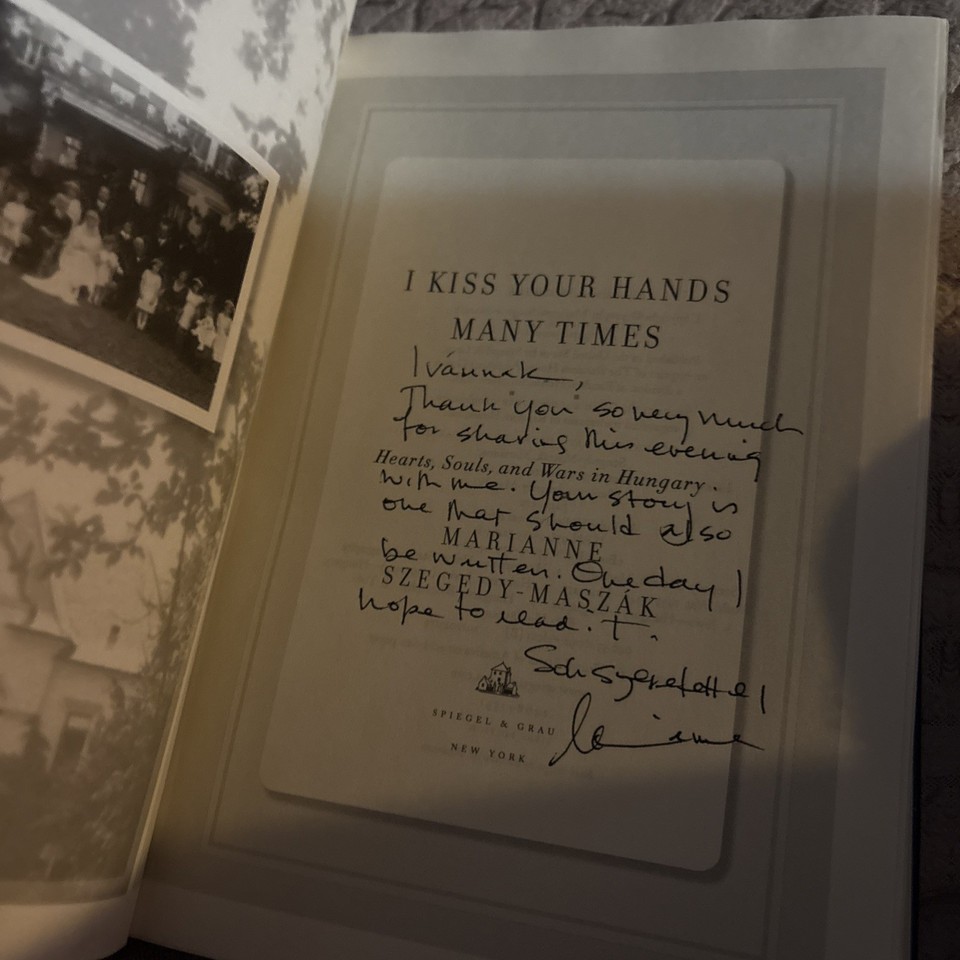 I KISS YOUR HANDS
MANY TIMES
Ivánnak,
Thank "you" so very much
for sharing this evening
Hearts, Souls, and Wars in Hungary
with me. Your story is
one that should also
MARIANNE
be written. One day I
SZEGEDY-MASZÁK
hope to read it.
Sok szeretettel
SPIEGEL & GRAU
NEW YORK